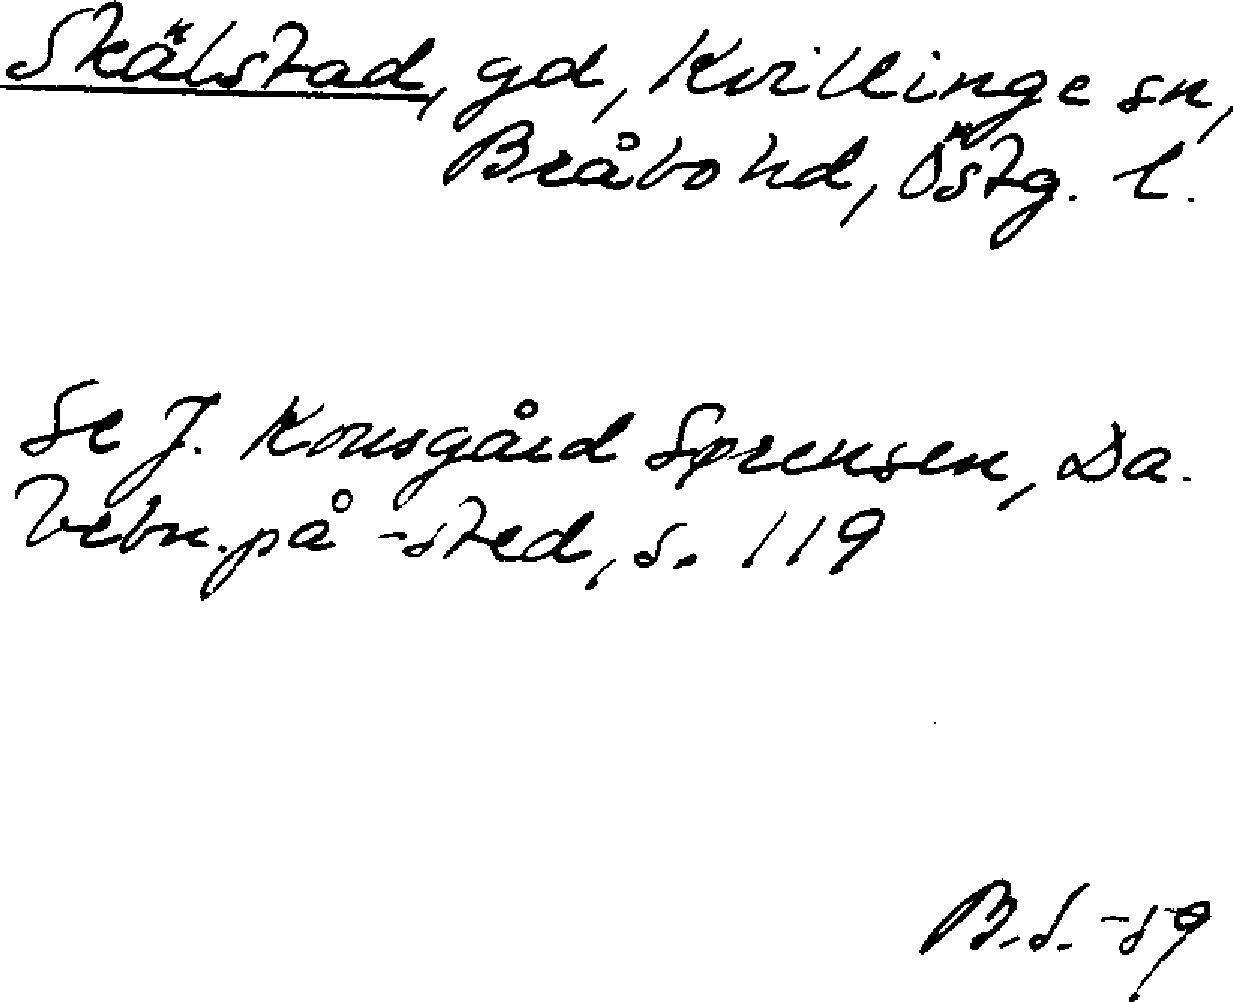 Skälstad, gd, Kvillinge sn,
Bråbo hd, Östg. l.
Se J. Kousgård Sørensen, Da.
bebn. på -sted, s. 119
B.S. -59